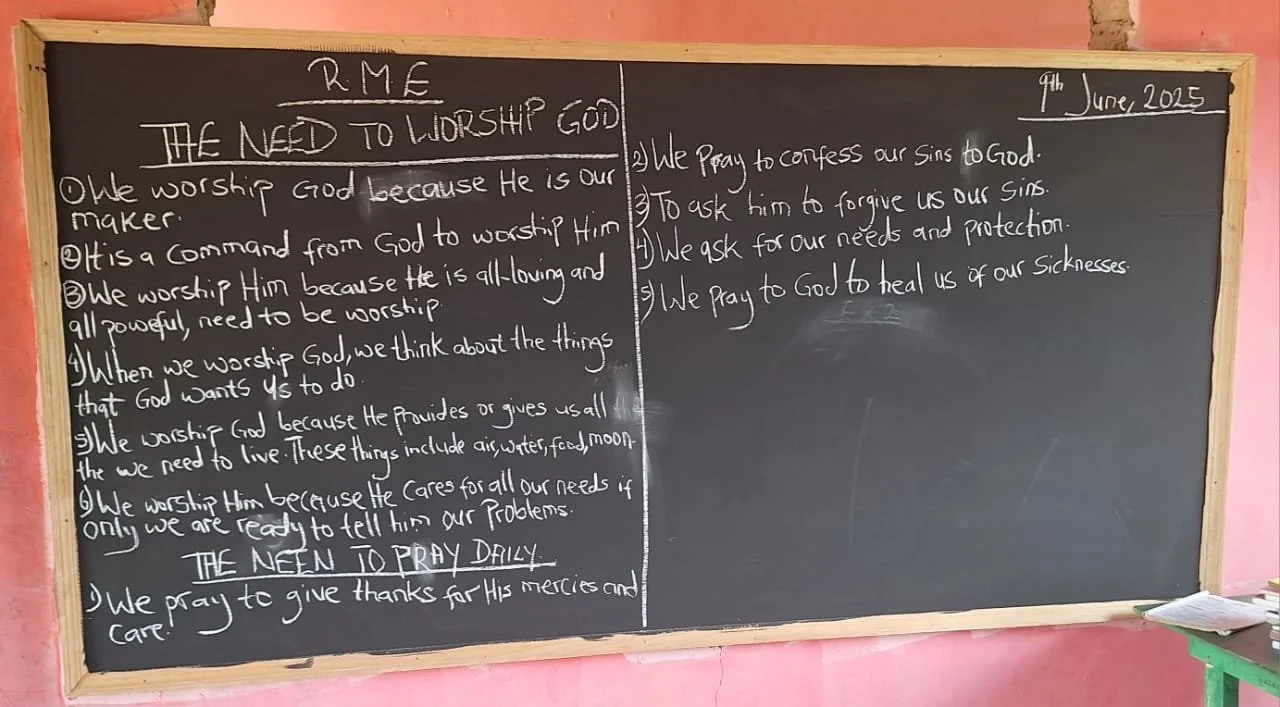 R.M.E
THE NEED TO WORSHIP GOD
① We worship God because He is our
maker.
② It is a Command from God to worship Him
③ We worship Him because He is all-loving and
all poweful, need to be worship.
4) When we worship God, we think about the things
that God wants us to do.
5) We worship God because He Provides or gives us all
the we need to live. These things include air, water, food, moon.
6) We worship Him because He Cares for all our needs if
only we are ready to tell him our Problems.
THE NEEN TO PRAY DAILY.
1) We pray to give thanks for His mercies and
Care.
9th June, 2025
2) We Pray to confess our Sins to God.
3) To ask him to forgive us our Sins.
4) We ask for our needs and protection.
5) We pray to God to heal us of our Sicknesses.
Ex 2